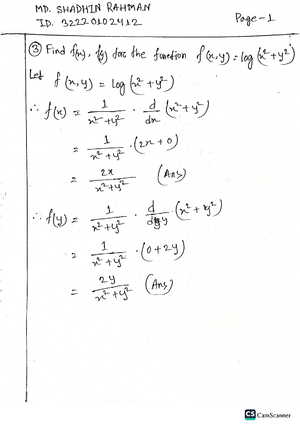 MD. SHADHIN RAHMAN
ID. 32220102412
Page-1
③ Find f(x), f(y) for the function f(x,y) = log(x²+y²)
Let f(x,y) = log(x²+y²)
∴ f(x) = 1/(x²+y²) · d/dx (x²+y²)
= 1/(x²+y²) · (2x+0)
= 2x/(x²+y²) (Ans)
∴ f(y) = 1/(x²+y²) · d/dy · (x²+y²)
= 1/(x²+y²) · (0+2y)
= 2y/(x²+y²) (Ans)
CS CamScanner